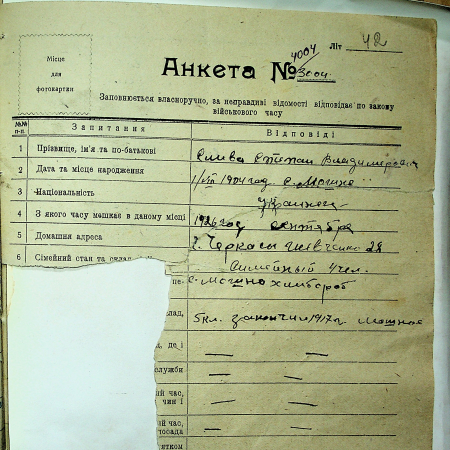 Літ 42
Місце
для
фотокартки
4004
Анкета № 3004
Заповнюється власноручно, за неправдиві відомості відповідає по закону
військового часу
№№ п-п. Запитання Відповіді
1 Прізвище, ім'я та по-батькові Слива Степан Владимирович
2 Дата та місце народження 1904 год. с. Мошно
3 Національність Украинец
4 З якого часу мешкає в даному місці 1926 год сентябрь
5 Домашня адреса г. Черкасы Шевченко 28
6 Сімейний стан та склад Симейный 4 чел.
с. Мошно хлибороб
лад, 5 кл. закончил 1917 г. Мошное
, де і — —
служби — —
ий час,
чин і — —
ий час,
посада — —
ятком